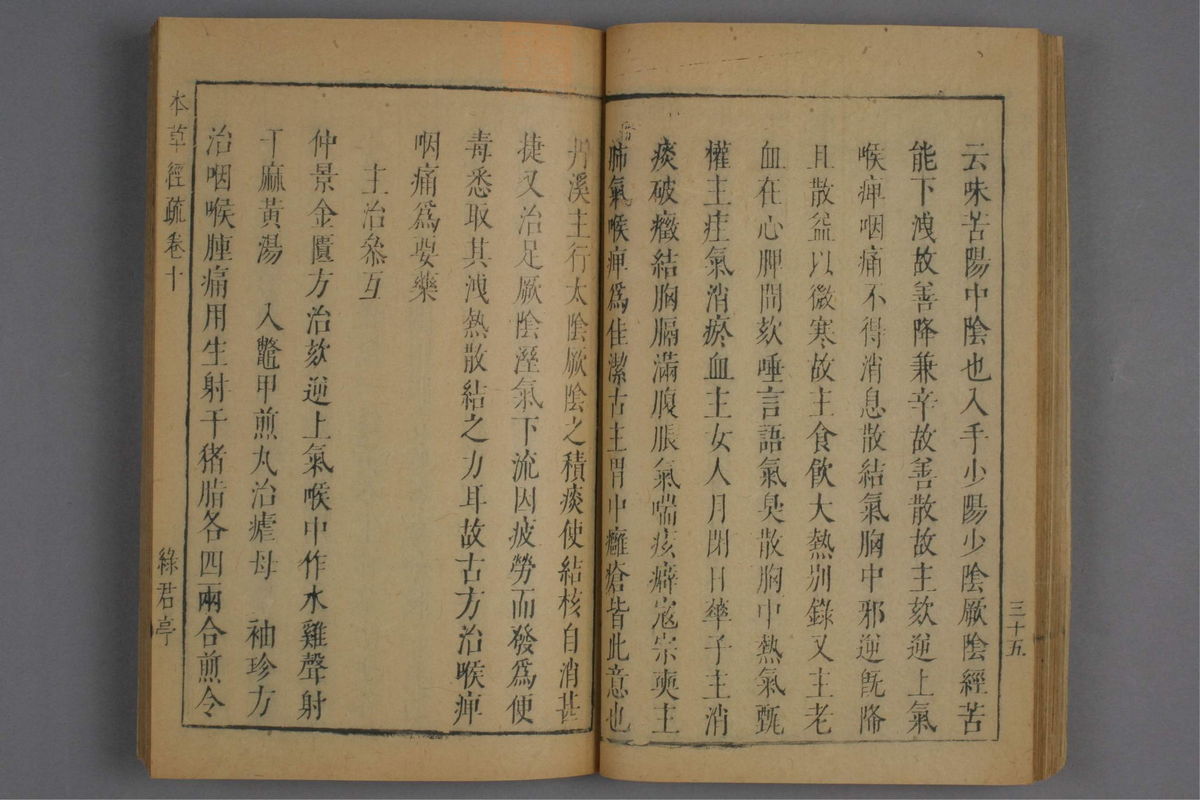 云味苦陽中陰也入手少陽少陰厥陰經苦
能下洩故善降兼辛故善散故主欬逆上氣
喉痺咽痛不得消息散結氣胸中邪逆旣降
且散益以微寒故主食飲大熱別錄又主老
血在心脾間欬唾言語氣臭散胸中熱氣甄
權主疰氣消瘀血主女人月閉日華子主消
痰破癥結胸膈滿腹脹氣喘痃癖寇宗奭主
肺氣喉痺爲佳潔古主胃中癰瘡皆此意也
三十五
丹溪主行太陰厥陰之積痰使結核自消甚
捷又治足厥陰溼氣下流因疲勞而發爲便
毒悉取其洩熱散結之力耳故古方治喉痺
咽痛爲要藥
主治叅互
仲景金匱方治欬逆上氣喉中作水雞聲射
干麻黃湯 入鼈甲煎丸治瘧母 袖珍方
治咽喉腫痛用生射干猪脂各四兩合煎令
本草經疏卷十
綠君亭